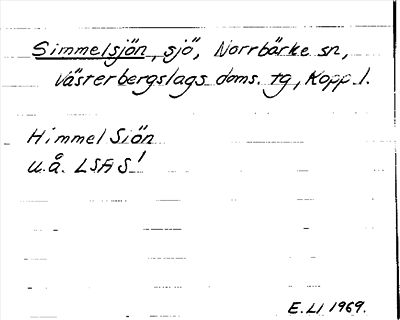 Simmelsjön, sjö, Norrbärke sn,
Västerbergslags doms. tg, Kopp. l.
Himmel Siön
u.å. LSAS!
E. LI 1969.